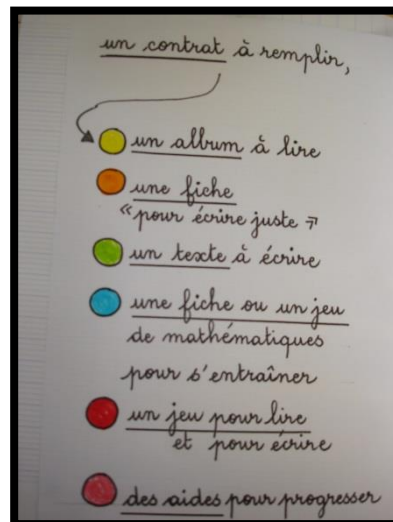 un contrat à remplir,
un album à lire
une fiche
« pour écrire juste »
un texte à écrire
une fiche ou un jeu
de mathématiques
pour s'entraîner
un jeu pour lire
et pour écrire
des aides pour progresser